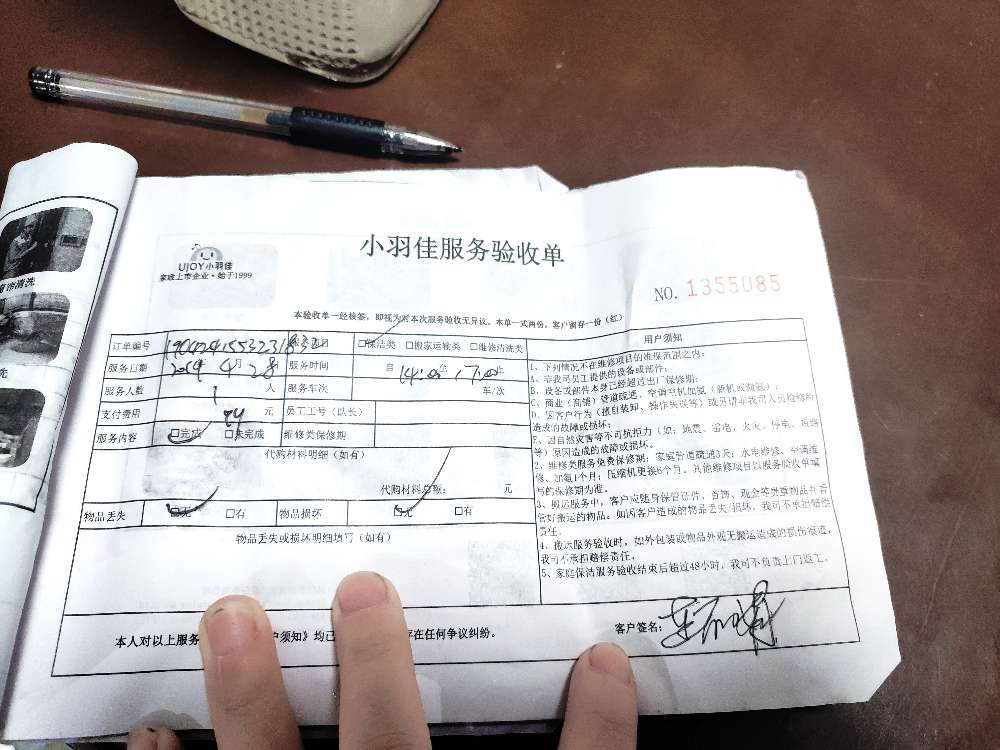 小羽佳服务验收单
UJOY小羽佳
家政上市企业·始于1999
NO. 1355085
本验收单一经核签，即视为对本次服务验收无异议。本单一式两份，客户留存一份（红）
订单编号
服务项目 □保洁类 □搬家运输类 □维修清洗类
服务日期 2019年 4月 28日 服务时间 自 14:00 至 17:00 止
服务人数 1 人 服务车次 车/次
支付费用 元 员工工号（队长）
服务内容 □完成 □未完成 维修类保修期
代购材料明细（如有）
代购材料总额： 元
物品丢失 □无 □有 物品损坏 □无 □有
物品丢失或损坏明细填写（如有）
用户须知
1、下列情况不在维修项目的准保范围之内：
A、非我司员工提供的设备或部件；
B、设备或部件本身已经超过出厂保修期；
C、商业（商铺）管道疏通、空调空机加氨（新机或微氨）；
D、因客户行为（擅自装卸、操作失误等）或另请非我司人员检修构
造成的故障或损坏；
E、因自然灾害等不可抗拒力（如：地震、雷电、火灾、停电、
等）原因造成的故障或损坏。
2、维修类服务免费保修期：家庭管道疏通3天；水电维修、空调维
修、加氨1个月；压缩机更换6个月。其他维修项目以服务验收单填
写的保修期为准。
3、搬运服务中，客户应随身保管证件、首饰、现金等贵重物品并看
管好搬运的物品。如因客户造成的物品丢失/损坏，我司不承担赔偿
责任。
4、搬运服务验收时，如外包装或物品外观无搬运造成的损伤痕迹，
我司不承担赔偿责任。
5、家庭保洁服务验收结束后超过48小时，我司不负责上门返工。
本人对以上服务 户须知》均已 存在任何争议纠纷。
客户签名：
清洗
洗